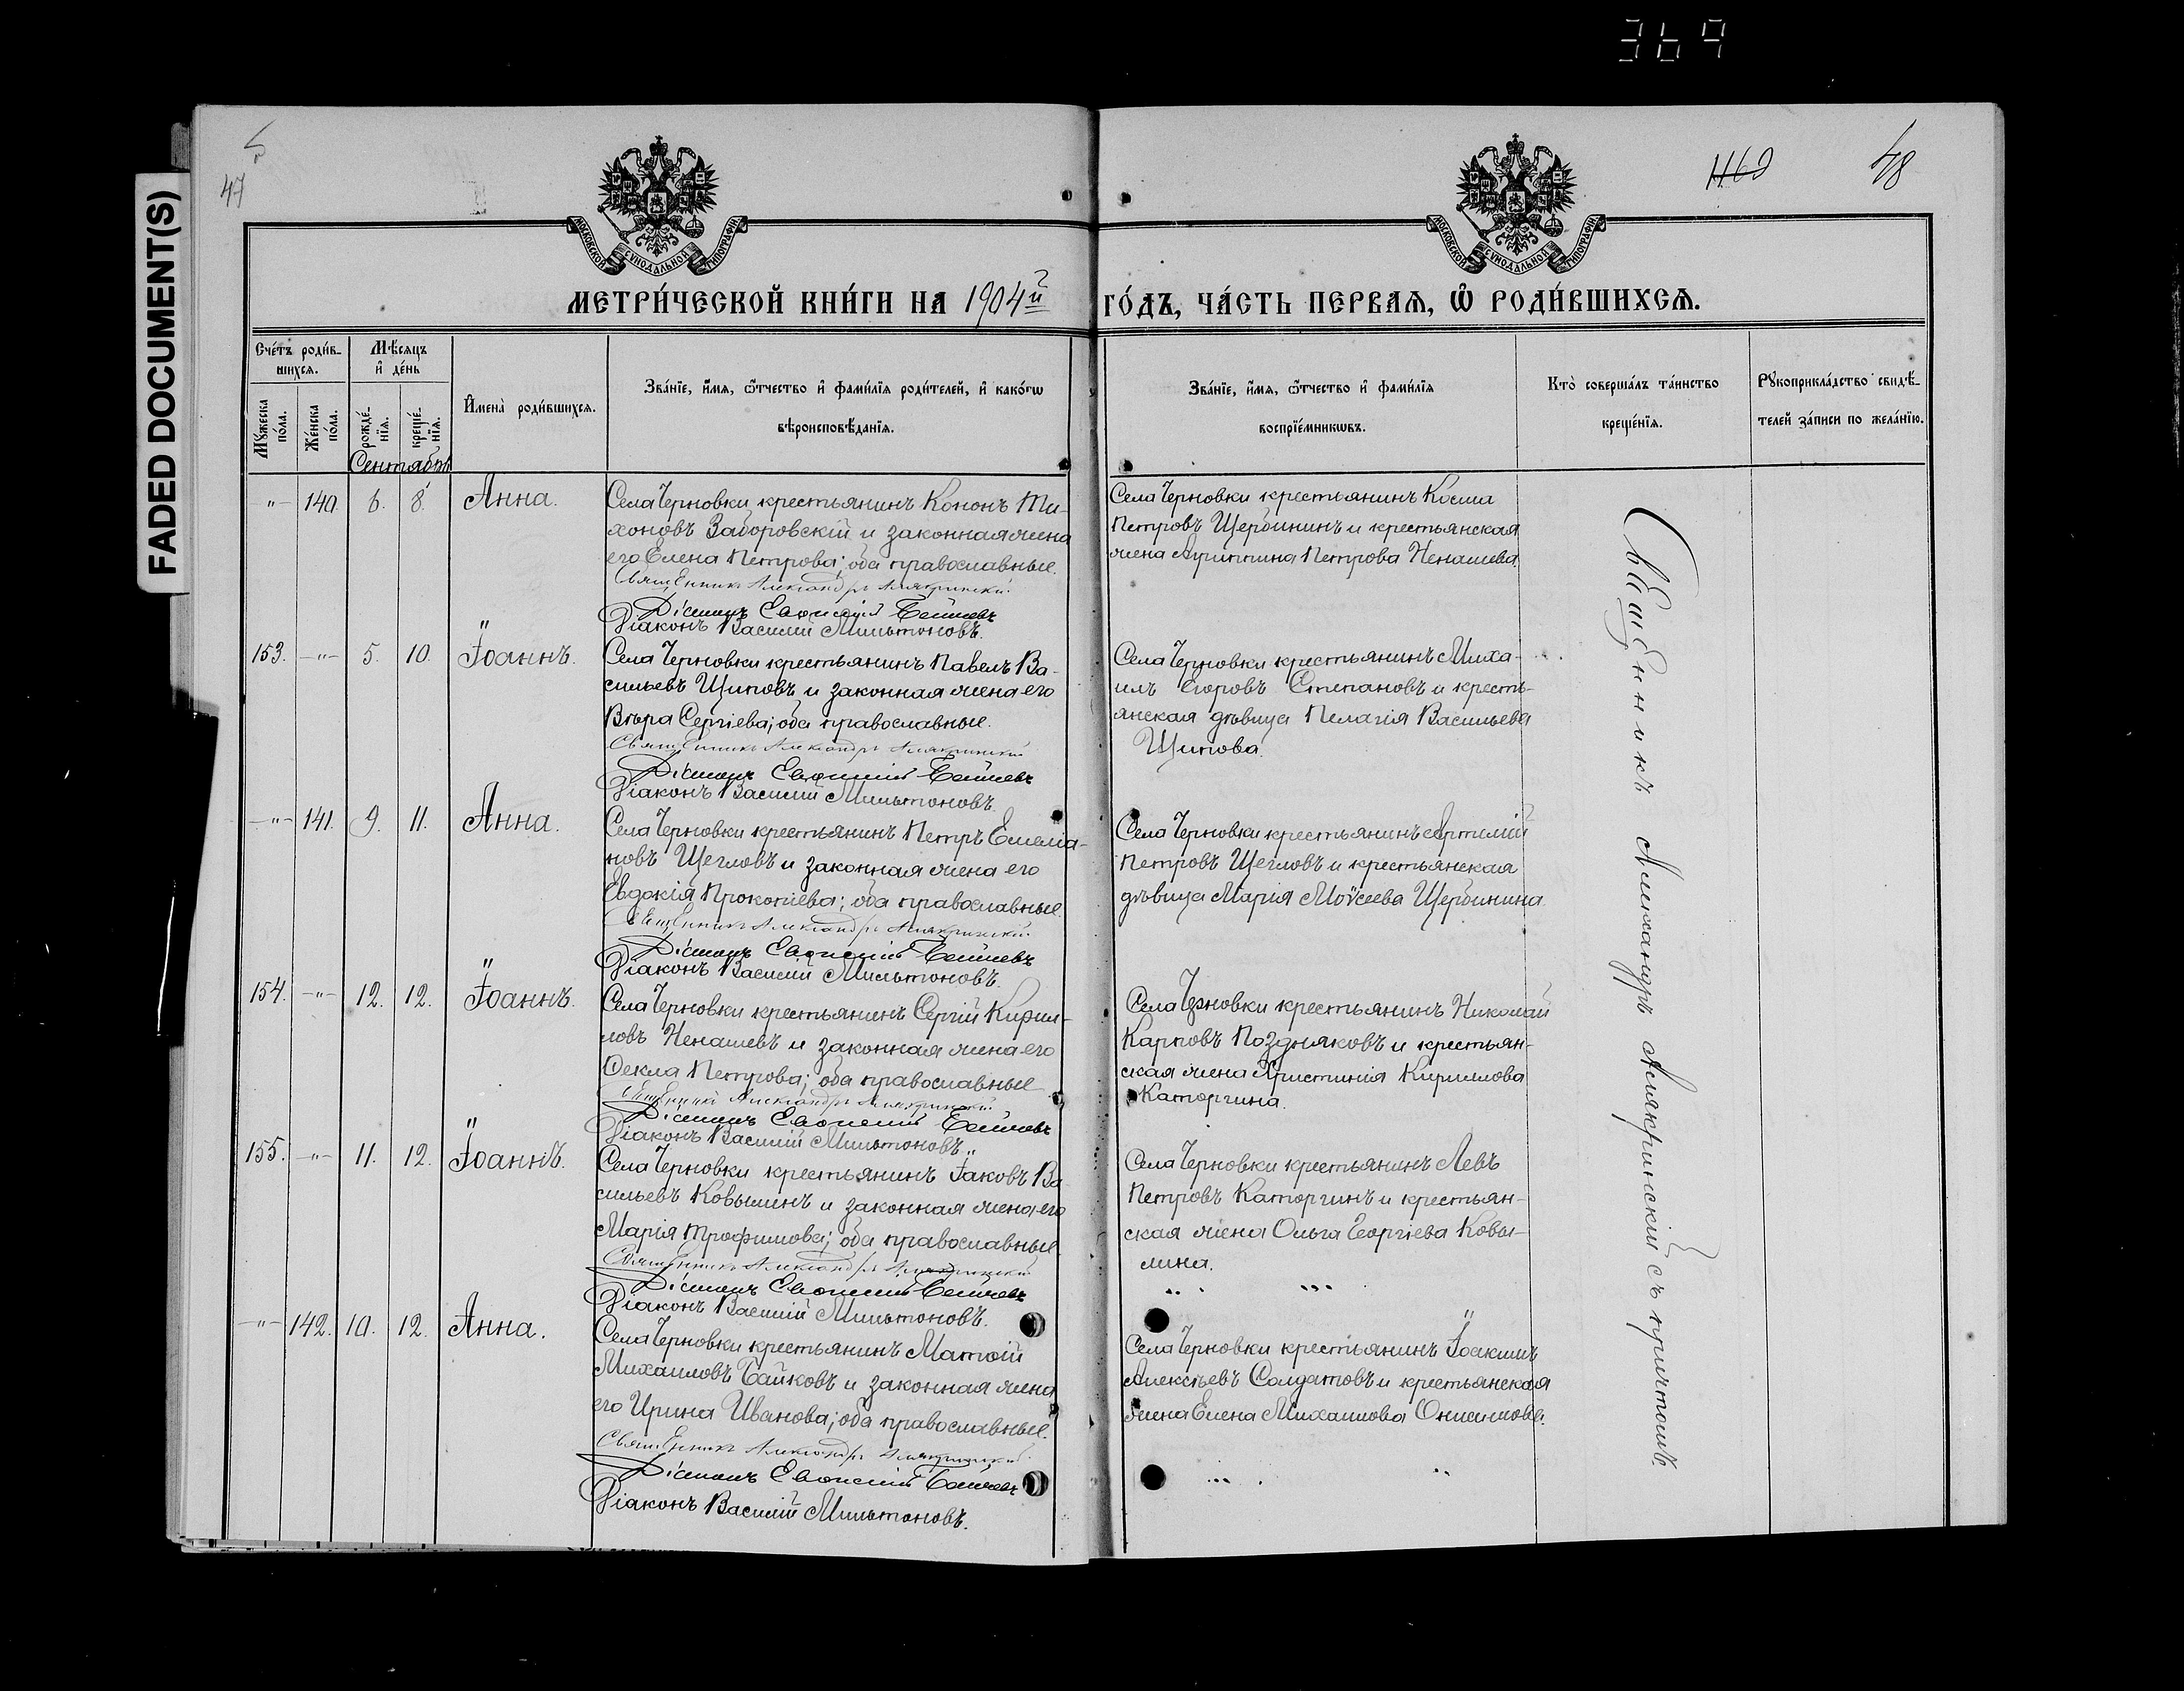 369
FADED DOCUMENT(S)
47
1169
48
МОСКОВСКОЙ СѴНОДАЛЬНОЙ ТИПОГРАФІИ
МОСКОВСКОЙ СѴНОДАЛЬНОЙ ТИПОГРАФІИ
МЕТРИ́ЧЕСКОЙ КНИ́ГИ НА 1904й ГО́ДЪ, ЧА́СТЬ ПЕРВАѦ, Ѿ РОДИ́ВШИХСѦ.
Сче́тъ роди́в-
шихсѧ.
Мѣ́сяцъ
и҆ де́нь
Мꙋ́жеска
по́ла.
Же́нска
по́ла.
рожде́-
нїѧ.
креще́-
нїѧ.
И҆мена̀ роди́вшихсѧ.
Зва́нїе, и҆́мѧ, ѻ҆́тчество и҆ фами́лїѧ роди́телей, и҆ како́гѡ
вѣроисповѣ́данїѧ.
Зва́нїе, и҆́мѧ, ѻ҆́тчество и҆ фами́лїѧ
воспрїе́мникѡвъ.
Кто̀ соверша́лъ та́инство
креще́нїѧ.
Рꙋкоприкла́дство свидѣ́-
телей за́писи по жела́нїю.
Сентябрь
-"- 140. 6. 8. Анна.
Села Черновки крестьянинъ Кононъ Ти-
хоновъ Заборовскій и законная жена
его Елена Петрова; оба православные.
Священникъ Александръ Алякринскій
Діаконъ Василій Мильтоновъ.
Села Черновки крестьянинъ Косма
Петровъ Щербининъ и крестьянская
жена Агриппина Петрова Ненашева.
153. -"- 5. 10. Іоаннъ.
Села Черновки крестьянинъ Павелъ Ва-
сильевъ Щиповъ и законная жена его
Вѣра Сергіева; оба православные.
Священникъ Александръ Алякринскій
Діаконъ Василій Мильтоновъ.
Села Черновки крестьянинъ Миха-
илъ Егоровъ Степановъ и кресть-
янская дѣвица Пелагія Васильева
Щипова.
-"- 141. 9. 11. Анна.
Села Черновки крестьянинъ Петръ Емелiа-
новъ Щегловъ и законная жена его
Евдокія Прокопіева; оба православные.
Священникъ Александръ Алякринскій
Діаконъ Василій Мильтоновъ.
Села Черновки крестьянинъ Артемій
Петровъ Щегловъ и крестьянская
дѣвица Марія Моѵсеева Щербинина.
154. -"- 12. 12. Іоаннъ.
Села Черновки крестьянинъ Сергій Кирил-
ловъ Ненашевъ и законная жена его
Ѳекла Петрова; оба православные
Священникъ Александръ Алякринскій
Діаконъ Василій Мильтоновъ.
Села Черновки крестьянинъ Николай
Карповъ Поздняковъ и крестьян-
ская жена Христинія Кириллова
Каторгина.
155. -"- 11. 12. Іоаннъ.
Села Черновки крестьянинъ Іаковъ Ва-
сильевъ Ковылинъ и законная жена его
Марія Трофимова; оба православные
Священникъ Александръ Алякринскій
Діаконъ Василій Мильтоновъ.
Села Черновки крестьянинъ Левъ
Петровъ Каторгинъ и крестьян-
ская жена Ольга Георгіева Ковы-
лина.
-"- 142. 10. 12. Анна.
Села Черновки крестьянинъ Матѳій
Михаиловъ Байковъ и законная жена
его Ирина Иванова; оба православные.
Священникъ Александръ Алякринскій
Діаконъ Василій Мильтоновъ.
Села Черновки крестьянинъ Іоакимъ
Алексѣевъ Солдатовъ и крестьянская
жена Елена Михаилова Онисимова.
Священникъ Александръ Алякринскій съ причтомъ.